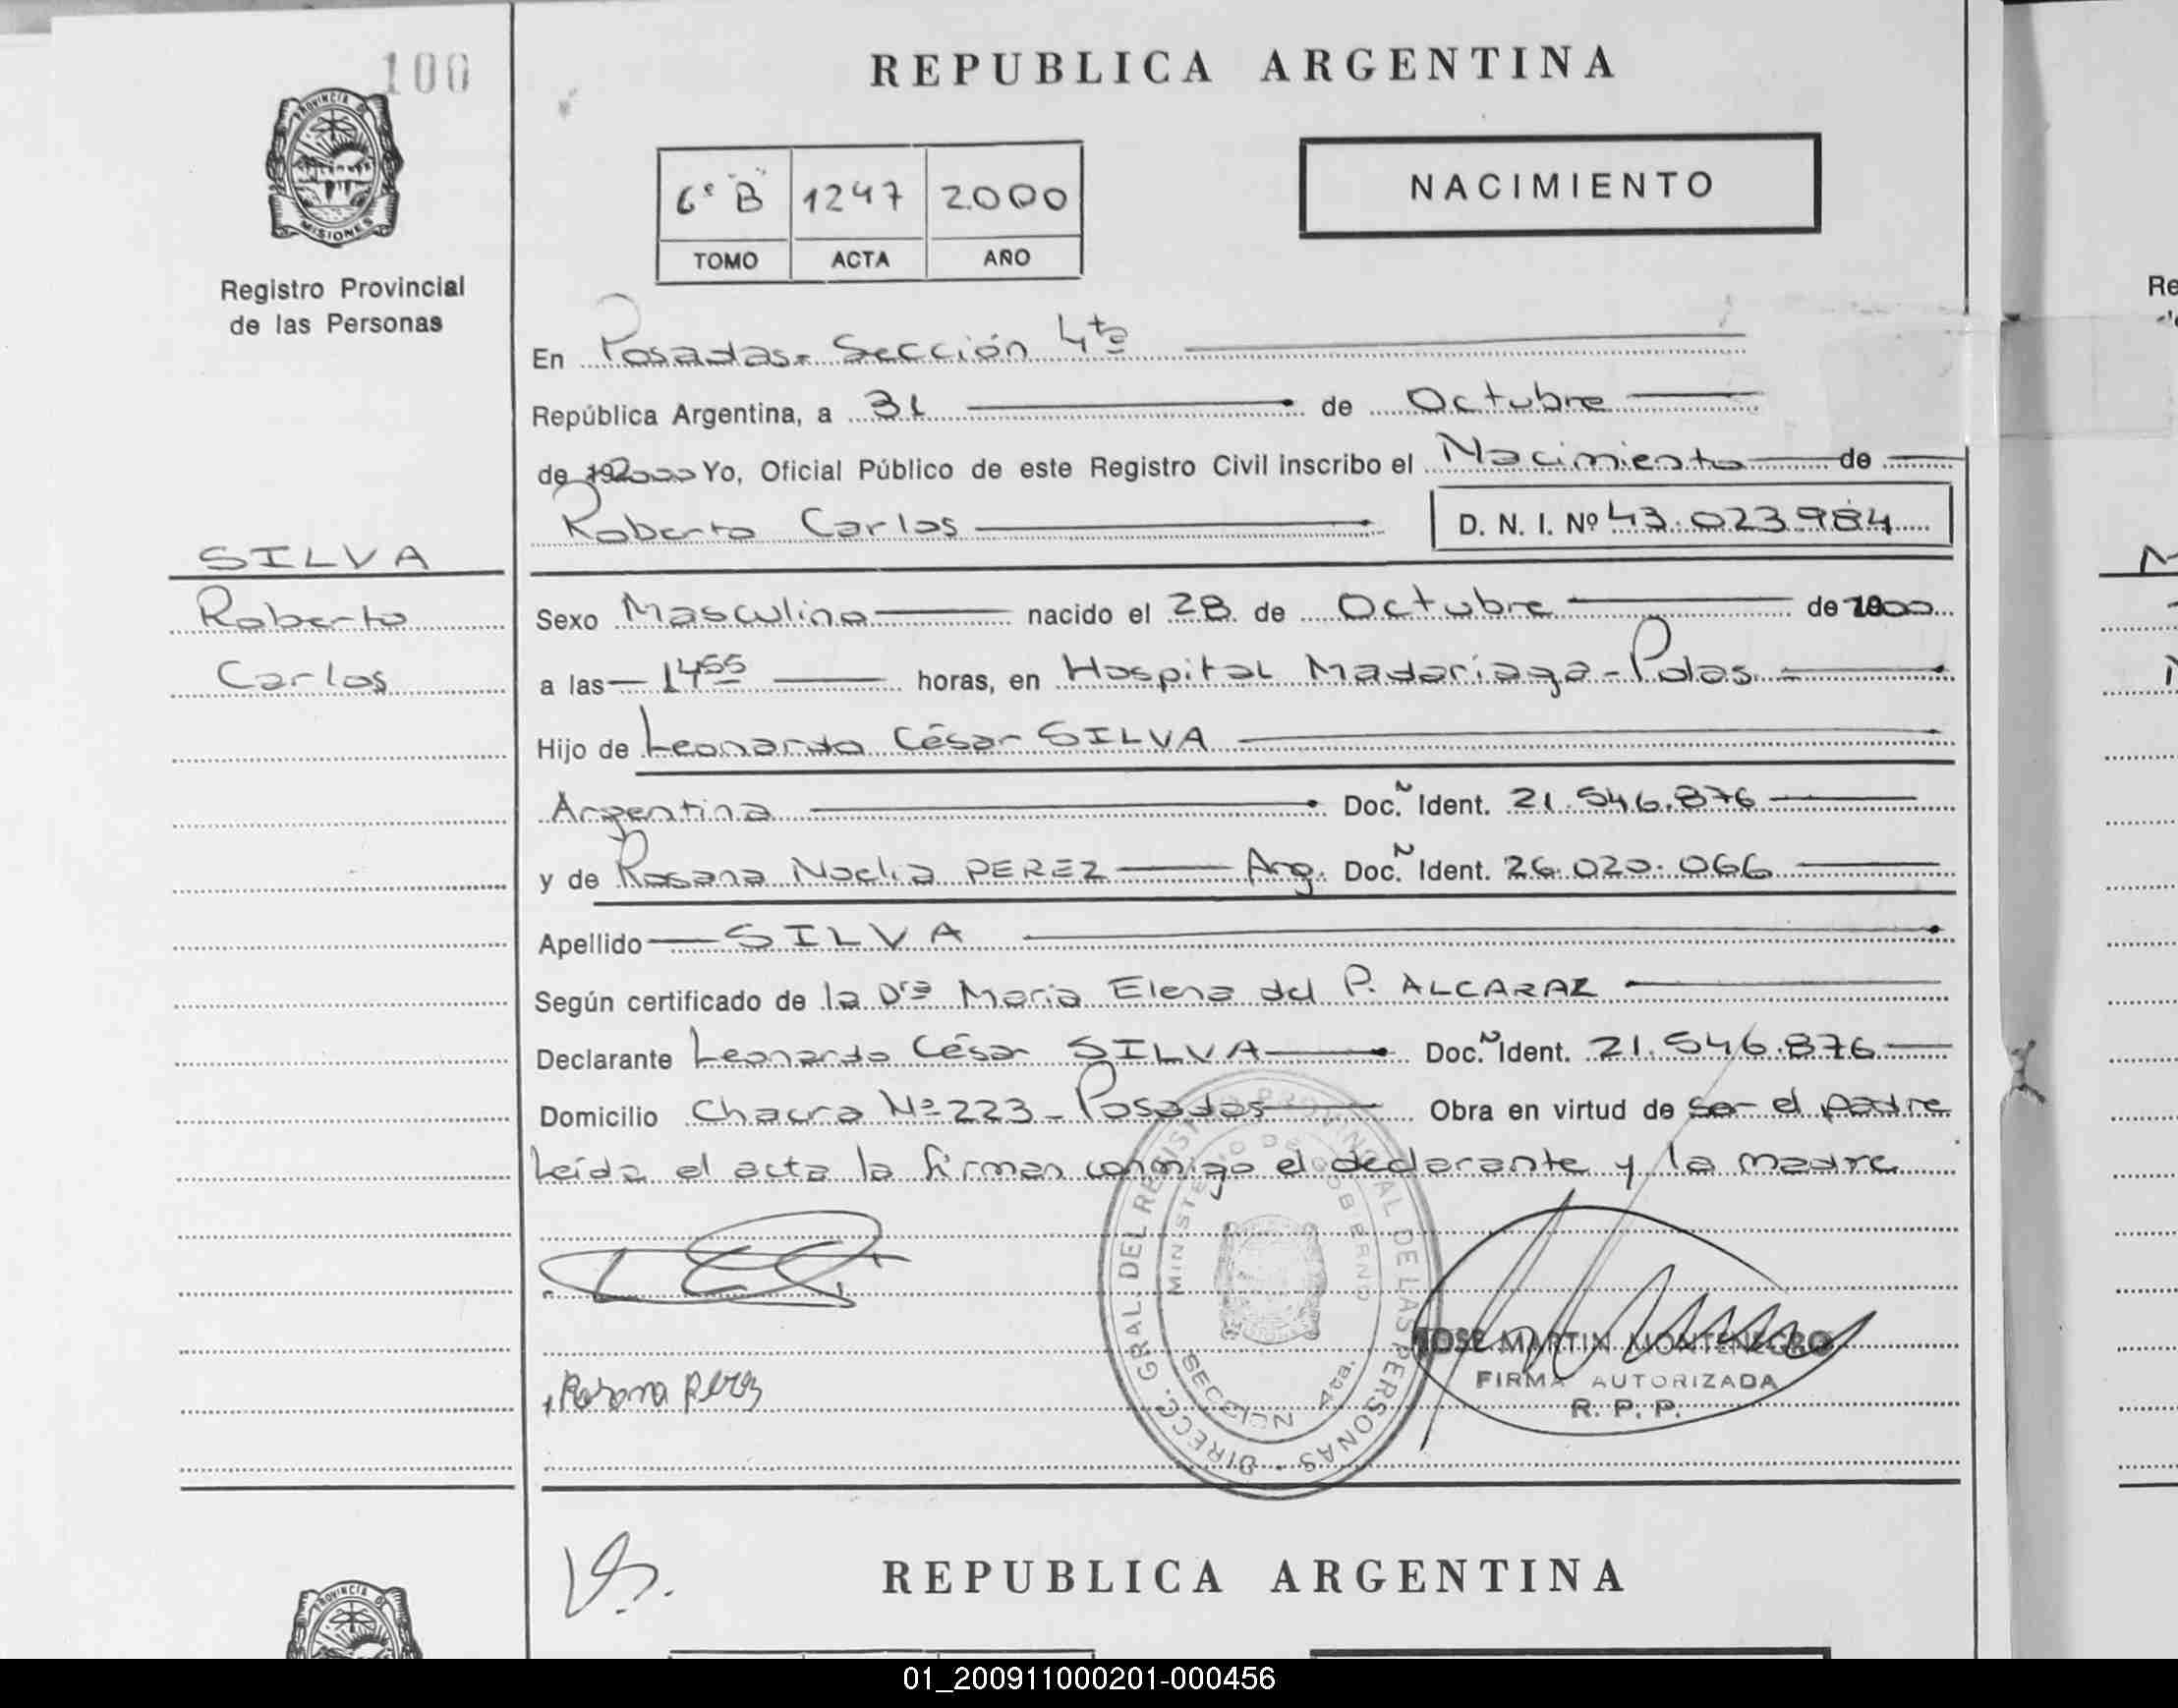 100
PROVINCIA DE
MISIONES
Registro Provincial
de las Personas
SILVA
Roberto
Carlos
REPUBLICA ARGENTINA
6º "B" 1247 2000
TOMO ACTA AÑO
NACIMIENTO
En Posadas- Sección 4ta
República Argentina, a 31 de Octubre
de 2000 Yo, Oficial Público de este Registro Civil inscribo el Nacimiento de
Roberto Carlos D. N. I. Nº 43.023.984
Sexo Masculino nacido el 28 de Octubre de 2000
a las 14 55 horas, en Hospital Madariaga - Pdas.
Hijo de Leonardo César SILVA
Argentina Doc. N Ident. 21.546.876
y de Rosana Noelia PEREZ Arg. Doc. N Ident. 26.020.066
Apellido SILVA
Según certificado de la Dra María Elena del P. ALCARAZ
Declarante Leonardo César SILVA Doc. N Ident. 21.546.876
Domicilio Chacra Nº 223 - Posadas Obra en virtud de ser el padre
Leída el acta la firman conmigo el declarante y la madre
DIRECC. GRAL. DEL REGISTRO PROVINCIAL DE LAS PERSONAS
MINISTERIO DE GOBIERNO
SECCION 4ta.
JOSE MARTIN MONTENEGRO
FIRMA AUTORIZADA
R. P. P.
Rosana Perez
REPUBLICA ARGENTINA
PROVINCIA DE
Re
01_200911000201-000456